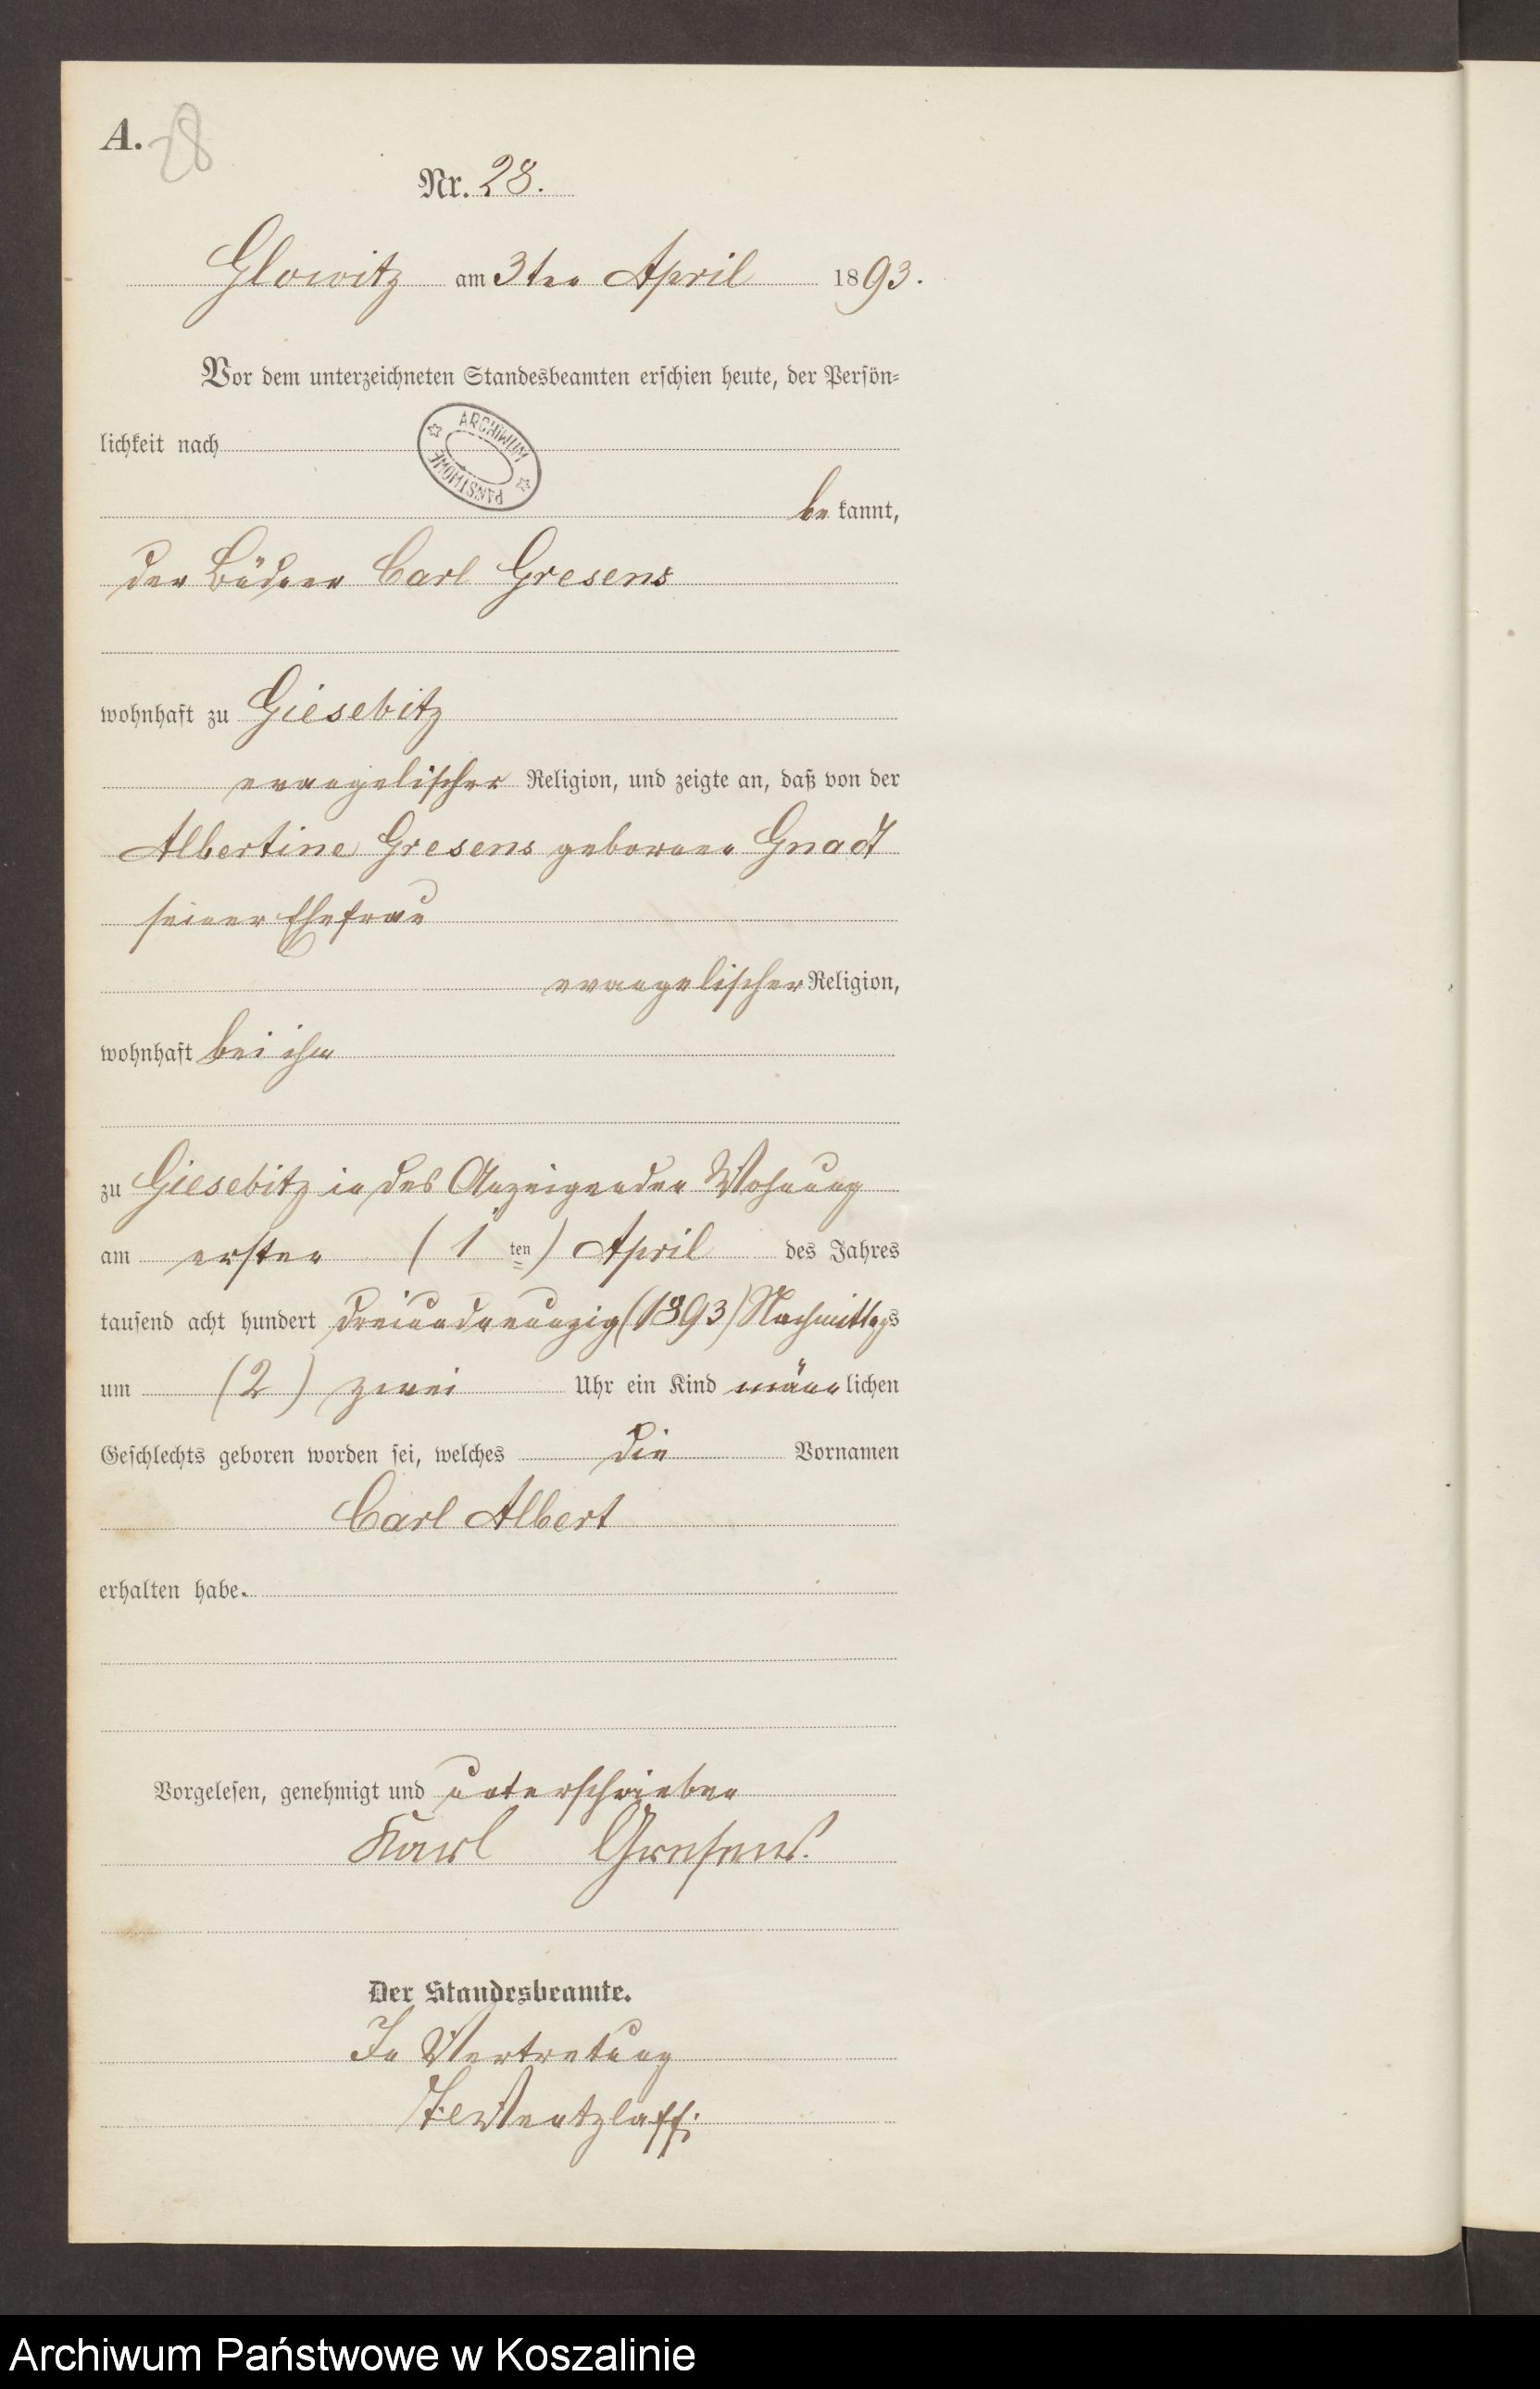 A. 28
Nr. 28.
Glowitz am 3ten April 1893.
Vor dem unterzeichneten Standesbeamten erschien heute, der Persön-
lichkeit nach
ARCHIWUM PAŃSTWOWE
be kannt,
der Büdner Carl Gresens
wohnhaft zu Giesebitz
evangelischer Religion, und zeigte an, daß von der
Albertine Gresens geborenen Gnadt
seiner Ehefrau
evangelischer Religion,
wohnhaft bei ihm
zu Giesebitz in des Anzeigenden Wohnung
am ersten (1 ten) April des Jahres
tausend acht hundert dreiundneunzig (1893) Nachmittags
um (2) zwei Uhr ein Kind männlichen
Geschlechts geboren worden sei, welches die Vornamen
Carl Albert
erhalten habe.
Vorgelesen, genehmigt und unterschrieben
Karl Gresens.
Der Standesbeamte.
In Vertretung
Wentzlaff.
Archiwum Państwowe w Koszalinie